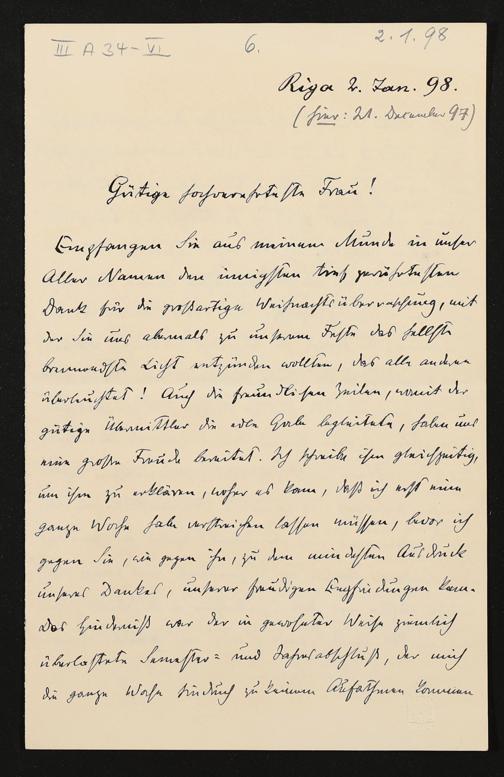 III A 34-VI 6. 2.1.98
Riga 2. Jan. 98.
(hier: 21. December 97)
Gütige hochverehrteste Frau!
Empfangen Sie aus meinem Munde in unser
Aller Namen den innigsten tief gerührtesten
Dank für die großartige Weihnachtsüberraschung, mit
der Sie uns abermals zu unserem Feste das hellste
brennendste Licht entzünden wollten, das alle anderen
überleuchtet! Auch die freundlichen Zeilen, womit der
gütige Übermittler die edle Gabe begleitete, haben uns
eine große Freude bereitet. Ich schreibe ihm gleichzeitig,
um ihm zu erklären, woher es kam, daß ich erst eine
ganze Woche habe verstreichen lassen müssen, bevor ich
gegen Sie, wie gegen ihn, zu dem mindesten Ausdruck
unseres Dankes, unserer freudigen Empfindungen kam.
Das Hinderniß war der in gewohnter Weise ziemlich
überlastete Semester= und Jahresabschluß, der mich
die ganze Woche hindurch zu keinem Aufathmen kommen